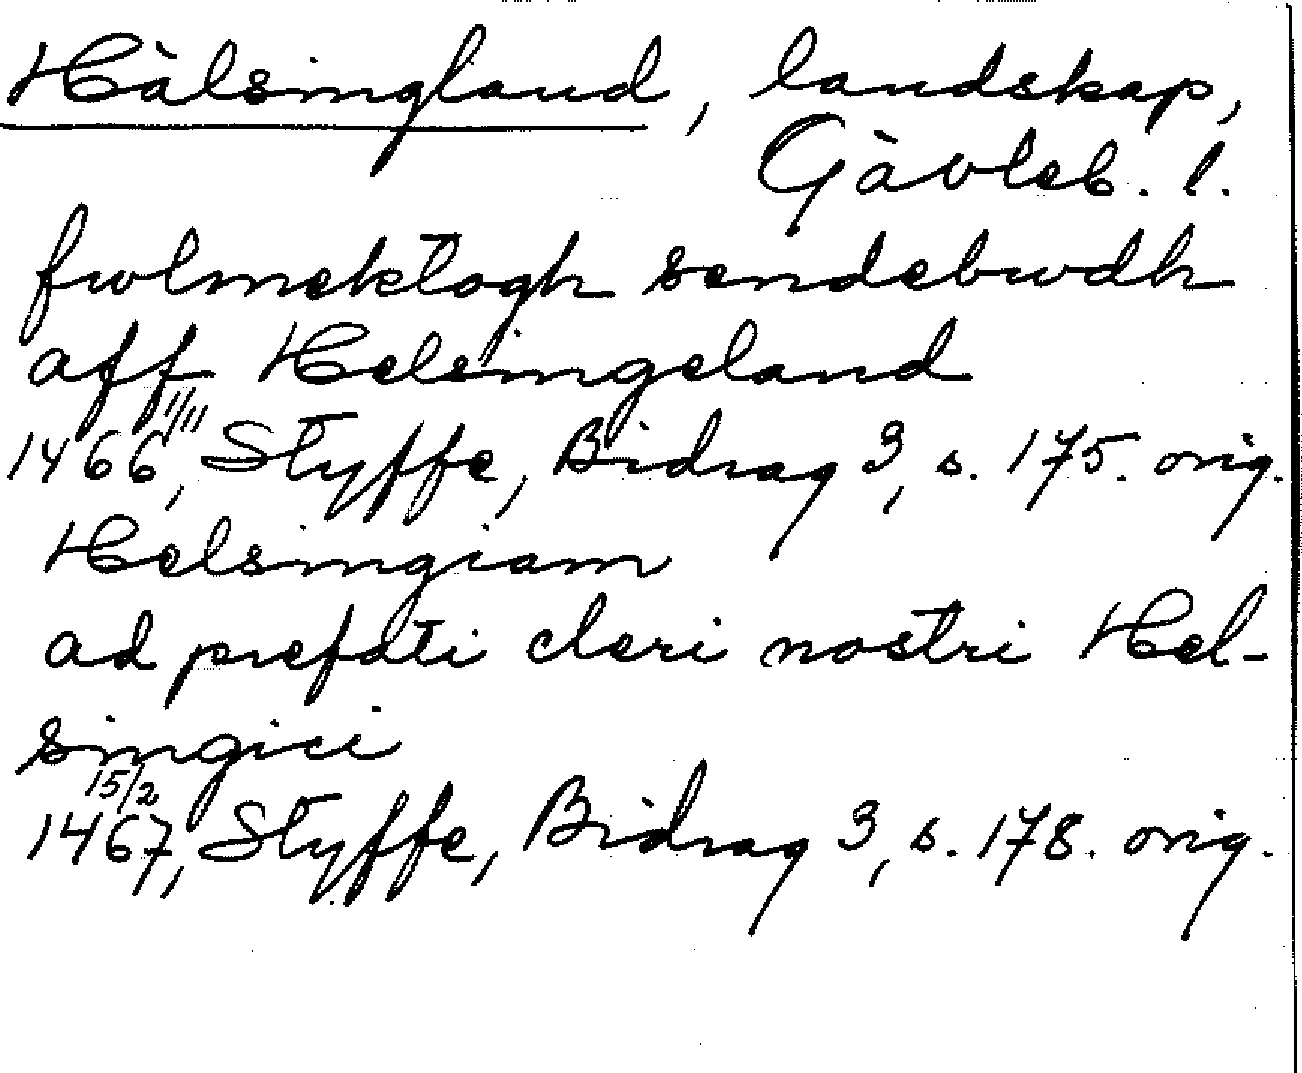 Hälsingland, landskap,
Gävleb. l.
fwlmektogh sendebwdh
aff Helsingeland
1466 11/11, Styffe, Bidrag 3, s. 175. orig.
Helsingiam
ad prefati cleri nostri Hel-
singici
1467 15/2, Styffe, Bidrag 3, s. 178. orig.